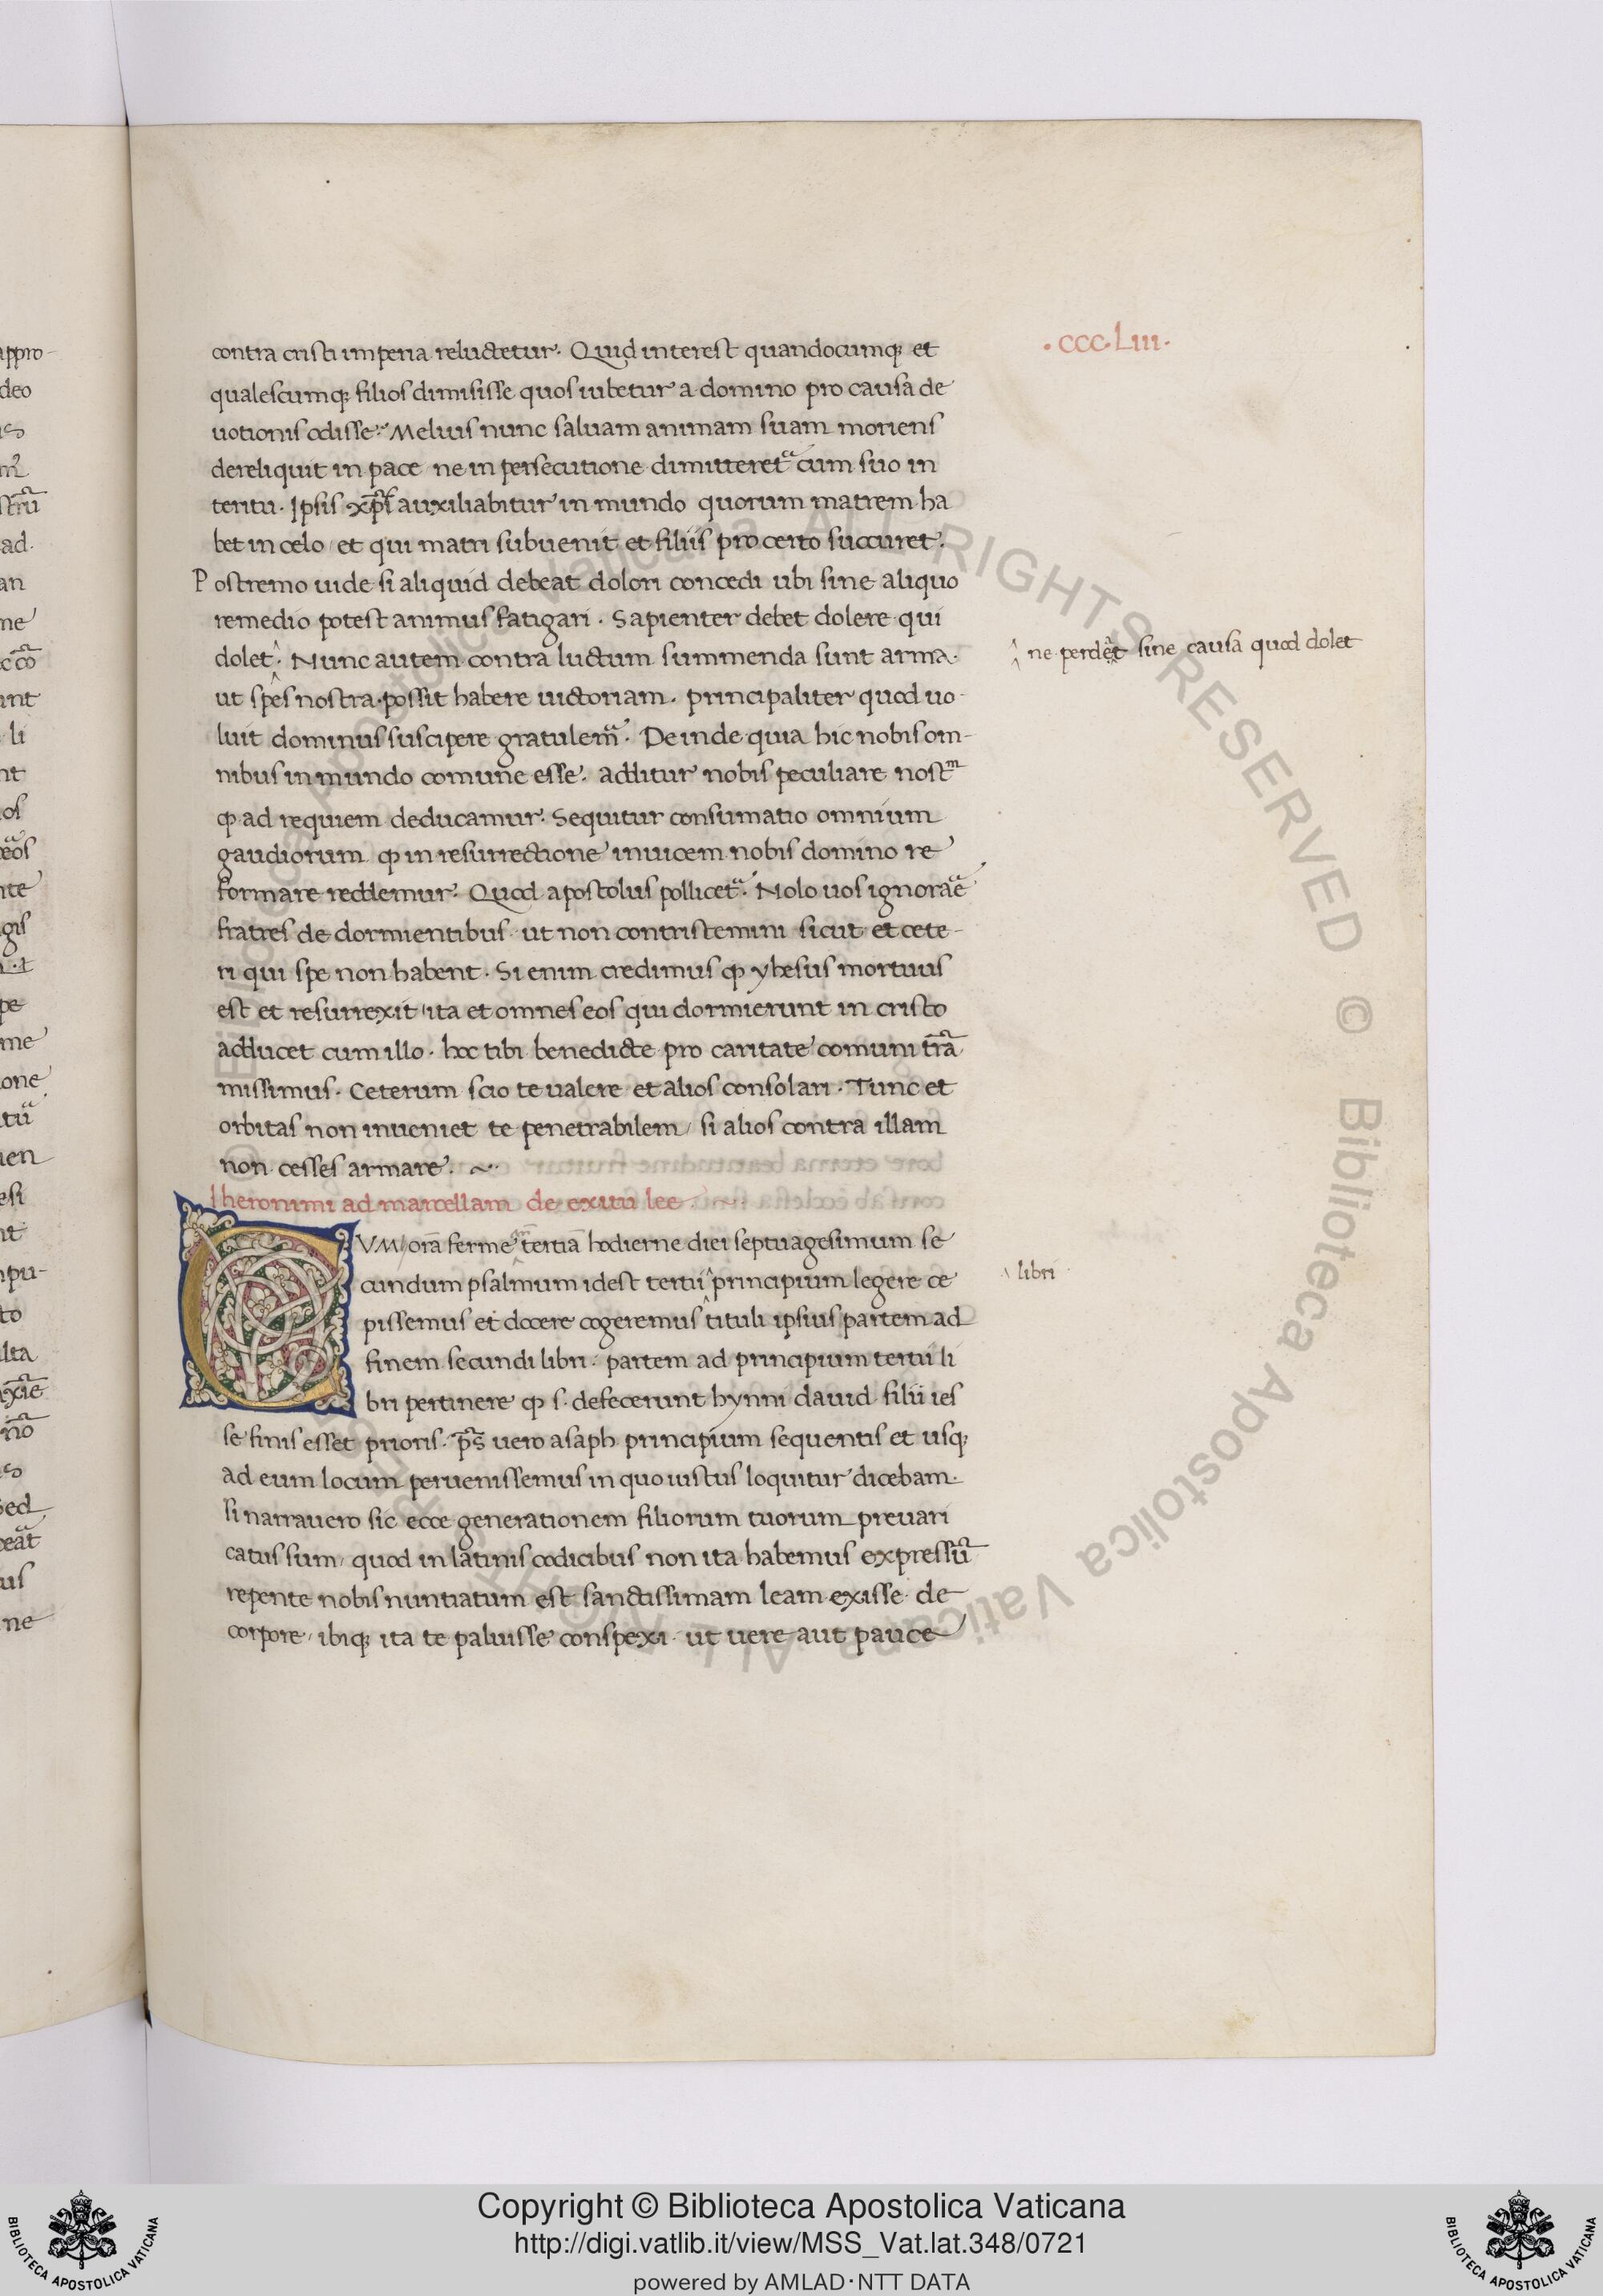 ·CCC·Liii·
contra cristi imperia reluctetur. Quid interest quandocumq; et
qualescumq; filios dimisisse quos iubetur a domino pro causa de
uotionis odisse: Melius nunc saluam animam suam moriens
dereliquit in pace ne in persecutione dimitteret cum suo in
teritu. Ipsis auxiliabitur in mundo quorum matrem ha
bet in celo et qui matri subuenit et filiis pro certo succuret.
Postremo uide si aliquid debeat dolori concedi ubi sine aliquo
remedio potest animus fatigari. Sapienter debet dolere qui
dolet. Nunc autem contra luctum summenda sunt arma.
ne perdet sine causa quod dolet
ut spes nostra possit habere uictoriam. principaliter quod uo
luit dominus suscipere gratulem̃. Deinde quia hic nobis om-
nibus in mundo comune esse. additur nobis peculiare nostᵐ
ꝙ ad requiem deducamur. Sequitur consumatio omnium
gaudiorum ꝙ in resurrectione inuicem nobis domino re
formare reddemur. Quod apostolus pollicet. Nolo uos ignorae
fratres de dormientibus ut non contristemini sicut et cete-
ri qui spe non habent. Si enim credimus ꝙ yhesus mortuus
est et resurrexit ita et omnes eos qui dormierunt in cristo
adducet cum illo. hoc tibi benedicte pro caritate comuni tra
missimus. Ceterum scio te ualere et alios consolari. Tunc et
orbitas non inueniet te penetrabilem, si alios contra illam
non cesses armare. ~
Iheronimi ad marcellam de exitu lee
CUM ora ferme tertia hodierne diei septuagesimum se
cundum psalmum idest tertii principium legere ce
libri
pissemus et docere cogeremus tituli ipsius partem ad
finem secundi libri. partem ad principium tertii li
bri pertinere ꝙ s. defecerunt hynni dauid filii ies
se finis esset prioris. ps̄ uero asaph principium sequentis et usq;
ad eum locum peruenissemus in quo iustus loquitur dicebam.
si narrauero sic ecce generationem filiorum tuorum preuari
catus sum, quod in latinis codicibus non ita habemus expressū
repente nobis nuntiatum est sanctissimam leam exisse de
corpore, ibiq; ita te paluisse conspexi ut uere aut pauce
Copyright © Biblioteca Apostolica Vaticana
http://digi.vatlib.it/view/MSS_Vat.lat.348/0721
powered by AMLAD·NTT DATA
BIBLIOTECA APOSTOLICA VATICANA
BIBLIOTECA APOSTOLICA VATICANA